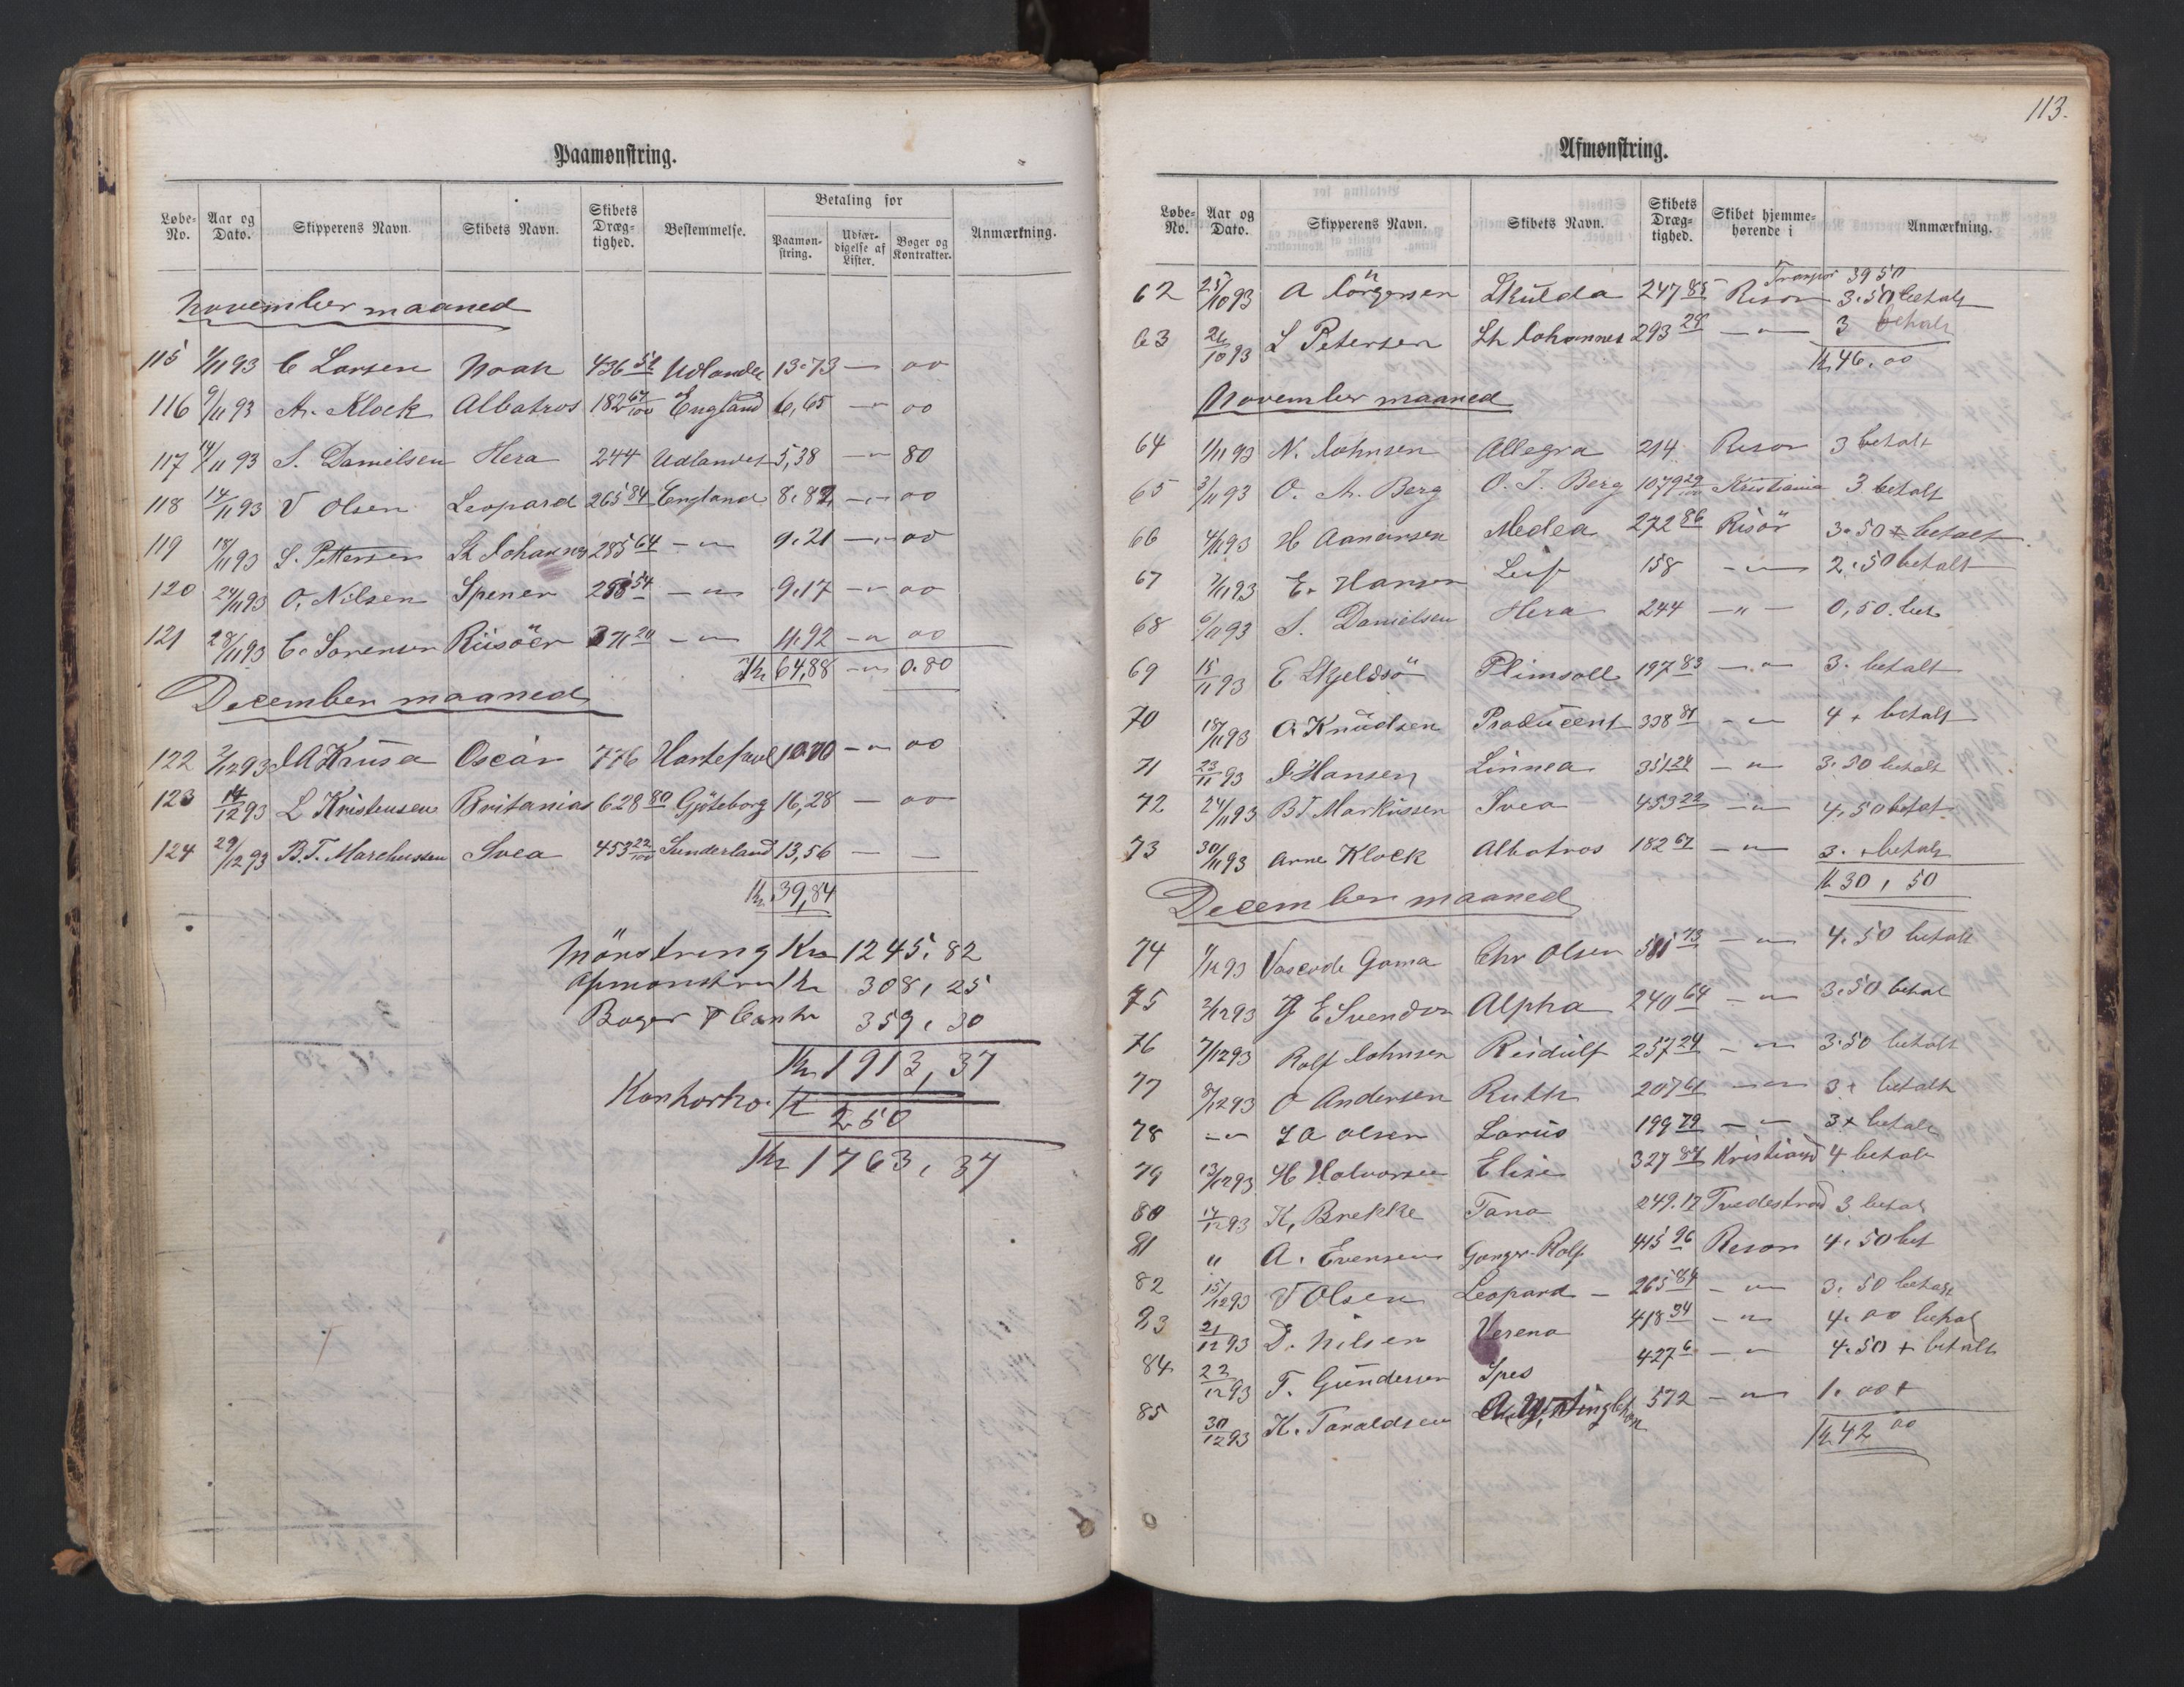 Paamønstring.
Løbe-No. Aar og Dato. Skipperens Navn Skibets Navn. Skibets Dræg-tighed. Bestemmelse. Betaling for Paamøn-string. Udfær-digelse af Lister. Bøger og Kontrakter. Anmærkning.
November maaned
115 1/11 93 C Larsen Noah 436 51 Udlandet 13.73 — 00
116 9/11 93 A. Klock Albatros 182 67/100 England 6,65 — " 00
117 14/11 93 S. Danielsen Hera 244 Udlandet 5,38 — " 80
118 14/11 93 V Olsen Leopard 265 84 England 8.82 — " — 00
119 18/11 93 S. Pettersen St Johannes 285 64 — " — 9.21 — " — 00
120 24/11 93 O. Nilsen Spener 258 54 — " — 9.17 — " — 00
121 28/11 93 C. Sorensen Riisöer 371 20 — " — 11.92 — " 00
Kr 64,88 — " — 0.80
December maaned
122 2/12 93 Oscar 776 — " 00
123 14/12 93 L Kristensen Britanias 628 80 Gøteborg 16,28 — 00
124 29/12 93 B.T. Marchussen Svea 453 22/100 Sunderland 13,56 — —
Kr. 39,84
Mönstring Kr 1245.82
Kr 308,25
Bøger & Contr 359,30
Kr 1913,37
Kr 250
Kr 1763,37
113.
Afmønstring.
Løbe-No. Aar og Dato. Skipperens Navn. Skibets Navn. Skibets Dræg-tighed. Skibet hjemme-hørende i Anmærkning.
Transpor 39 50
62 25/10 93 A Jörgensen Skulda 247 85 Risor 3.50 betalt
63 26/10 93 L Petersen St Johannes 293 28 — " — 3 betalt
Kr 46.00
November maaned
64 1/11 93 N. Johnsen Allegra 214 Risor 3 betalt
65 3/11 93 O. A. Berg O. T. Berg 1079 29/100 Kristiania 3 betalt
66 4/11 93 H Aanonsen Medea 272 86 Risör 3.50 + betalt
67 7/11 93 E. Hansen Leif 158 — " — 2.50 betalt
68 6/11 93 S. Danielsen Hera 244 — " — 0,50. bet
69 15/11 93 E Skjeldsö Plimsoll 197 83 — " 3. betalt
70 18/11 93 O. Knudsen Producent 338 81 — " — 4 + betalt
71 23/11 93 J. Hansen Linnea 351 24 — " 3.50 betalt
72 24/11 93 B T. Markussen Svea 453 22 — " — 4.50 betalt
73 30/11 93 Arne Klock Albatros 182 67 — " — 3. + betalt
Kr 30,50
December maaned
74 1/12 93 Vascode Gama Chr Olsen 73 — " — 4.50 betalt
75 2/12 93 E Svendsen Alpha 240 64 — " — 3.50 betal
76 7/12 93 Rolf Johnsen Reidulf 257 24 — " — 3.50 betalt
77 8/12 93 O Andersen Ruth 207 61 — " — 3 + betalt
78 — " — J A Olsen Larus 199 79 — " — 3 + betalt
79 13/12 93 H Halvorsen Elise 327 87 Kristiansd 4 betalt
80 14/12 93 K. Brekke Tana 249.17 Tvedestrand 3 betal
81 " A. Evensen Ganger-Rolf 415 96 Risor 4.50 bet
82 15/12 93 V Olsen Leopard — 265 84 — " — 3.50 betalt
83 21/12 93 D. Nilsen Verena 418 34 — " — 4.00 betal
84 22/12 93 T. Gundersen Spes 427 6 — " — 4.50 + betalt
85 30/12 93 K. Taraldsen 572 — " — 1.00 +
Kr 42 00